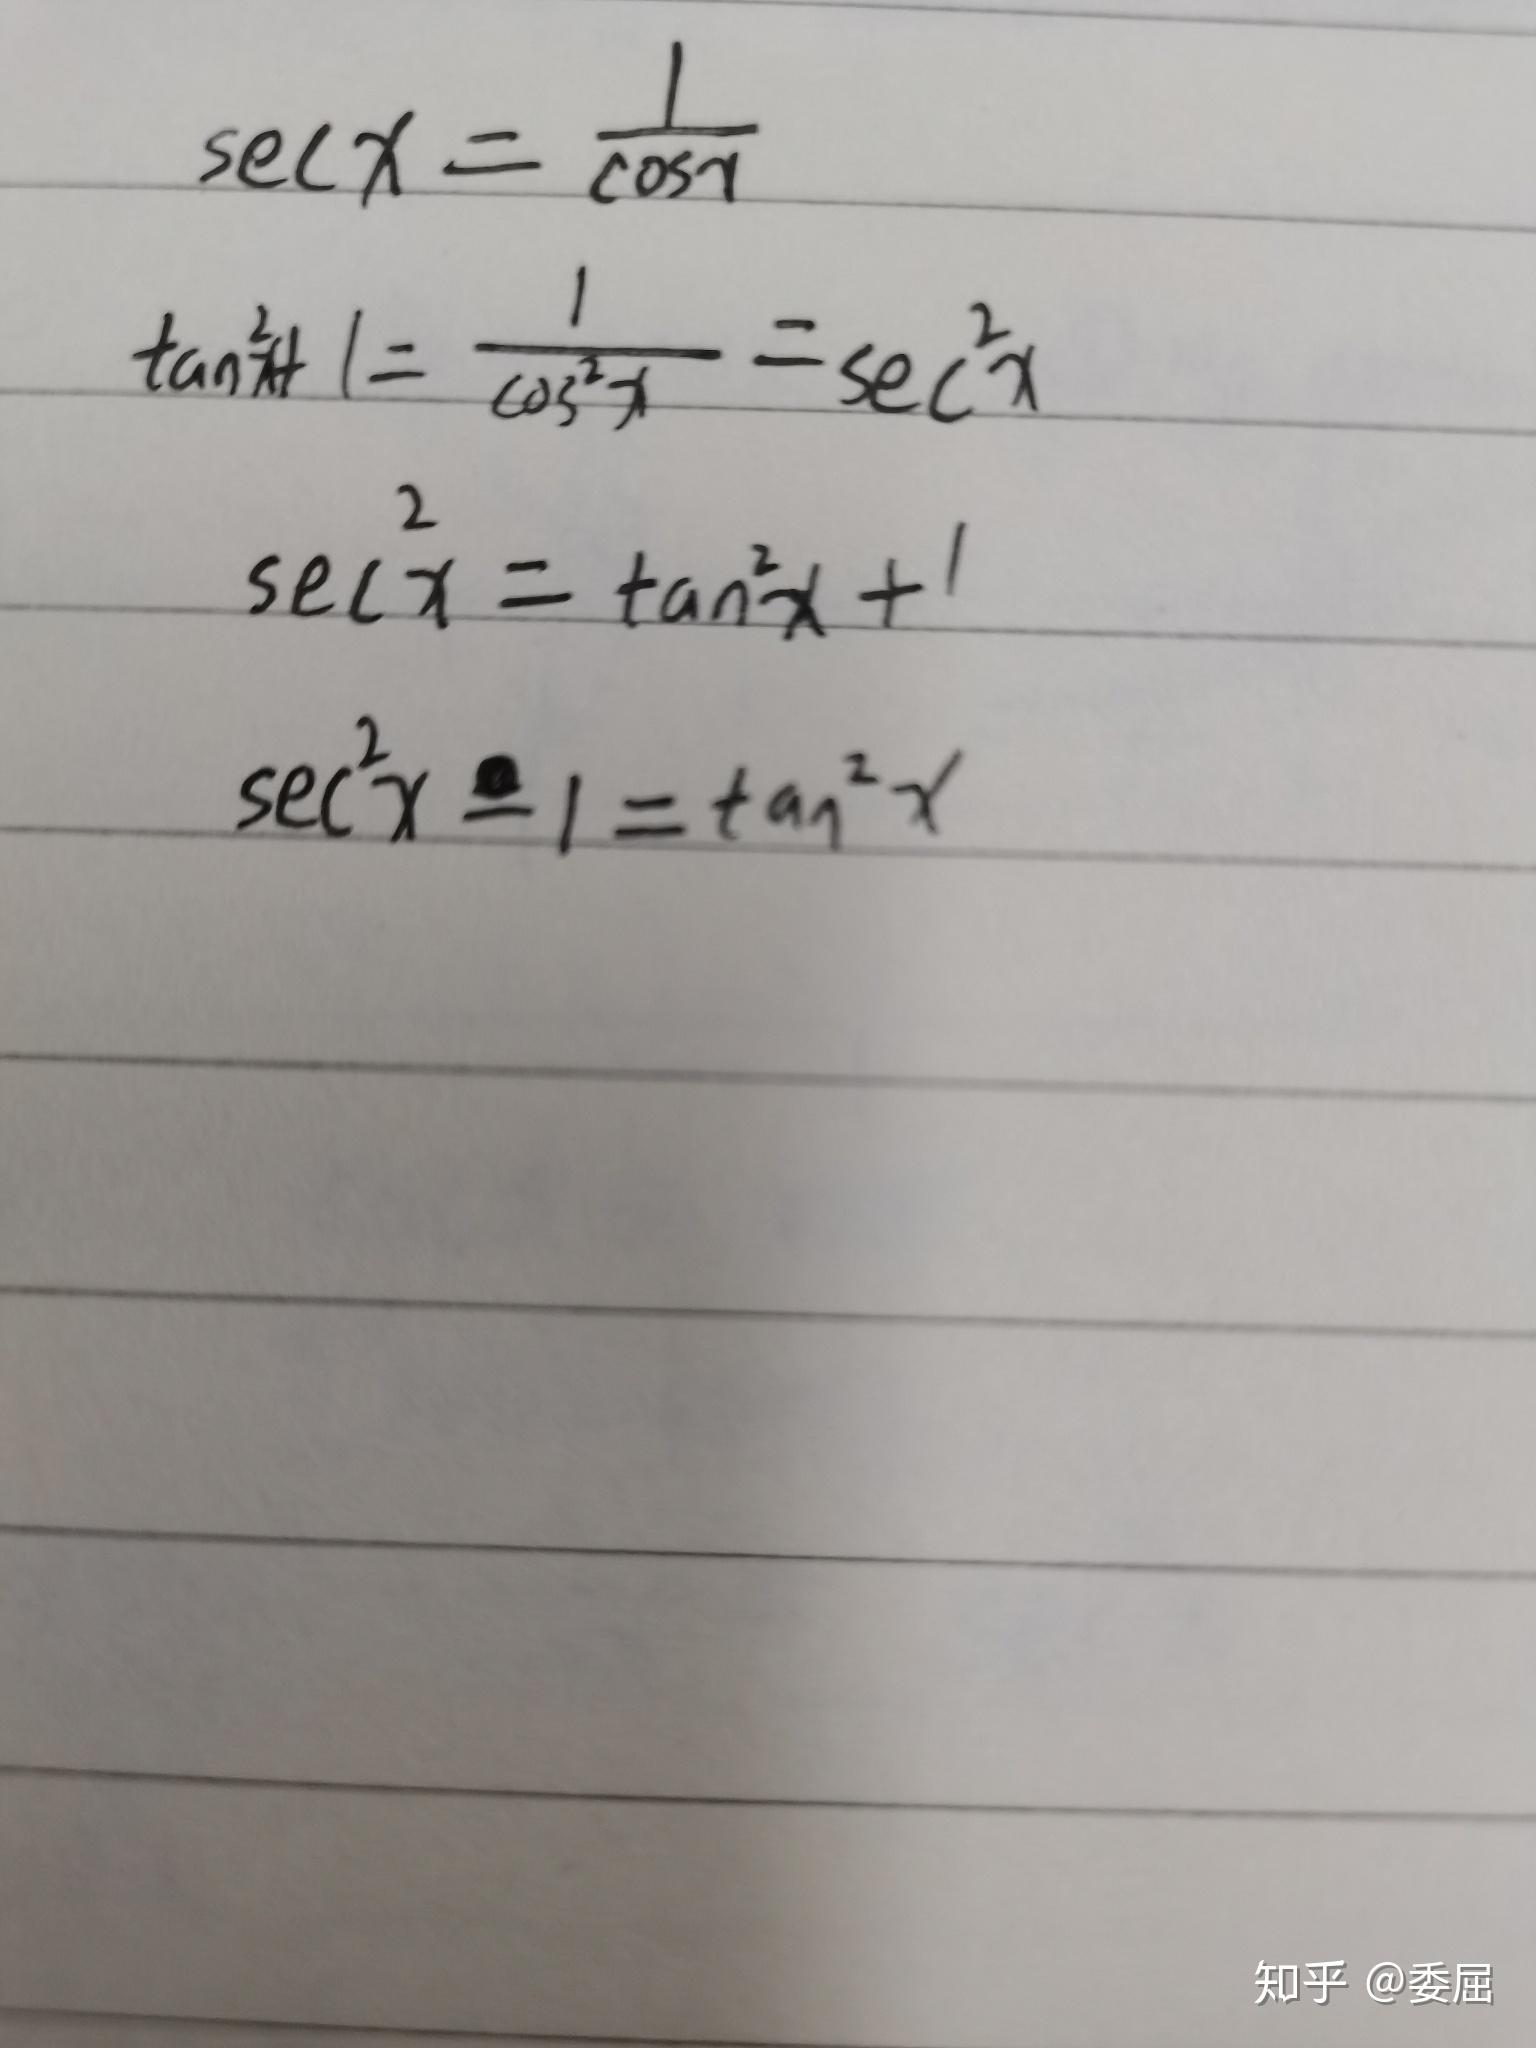 sec x = 1/cos x
tan²x + 1 = 1/cos²x = sec²x
sec²x = tan²x + 1
sec²x - 1 = tan²x
知乎 @委屈